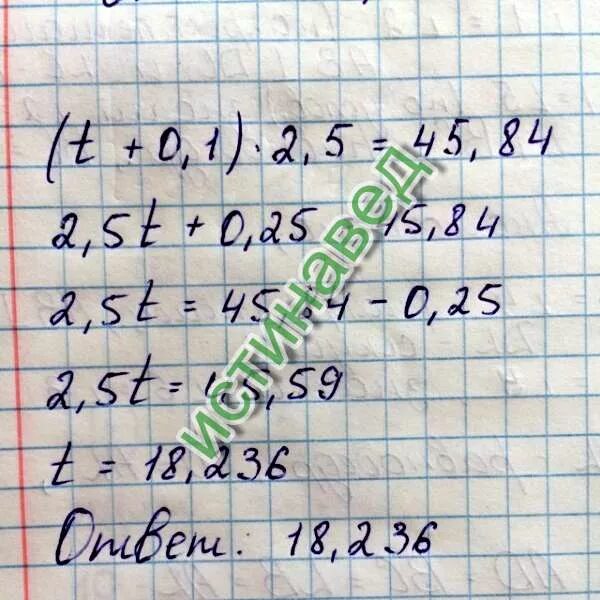 (t + 0,1) · 2,5 = 45,84
2,5t + 0,25 45,84
2,5t = 45,84 - 0,25
2,5t = 45,59
t = 18,236
Ответ: 18,236
истинавед